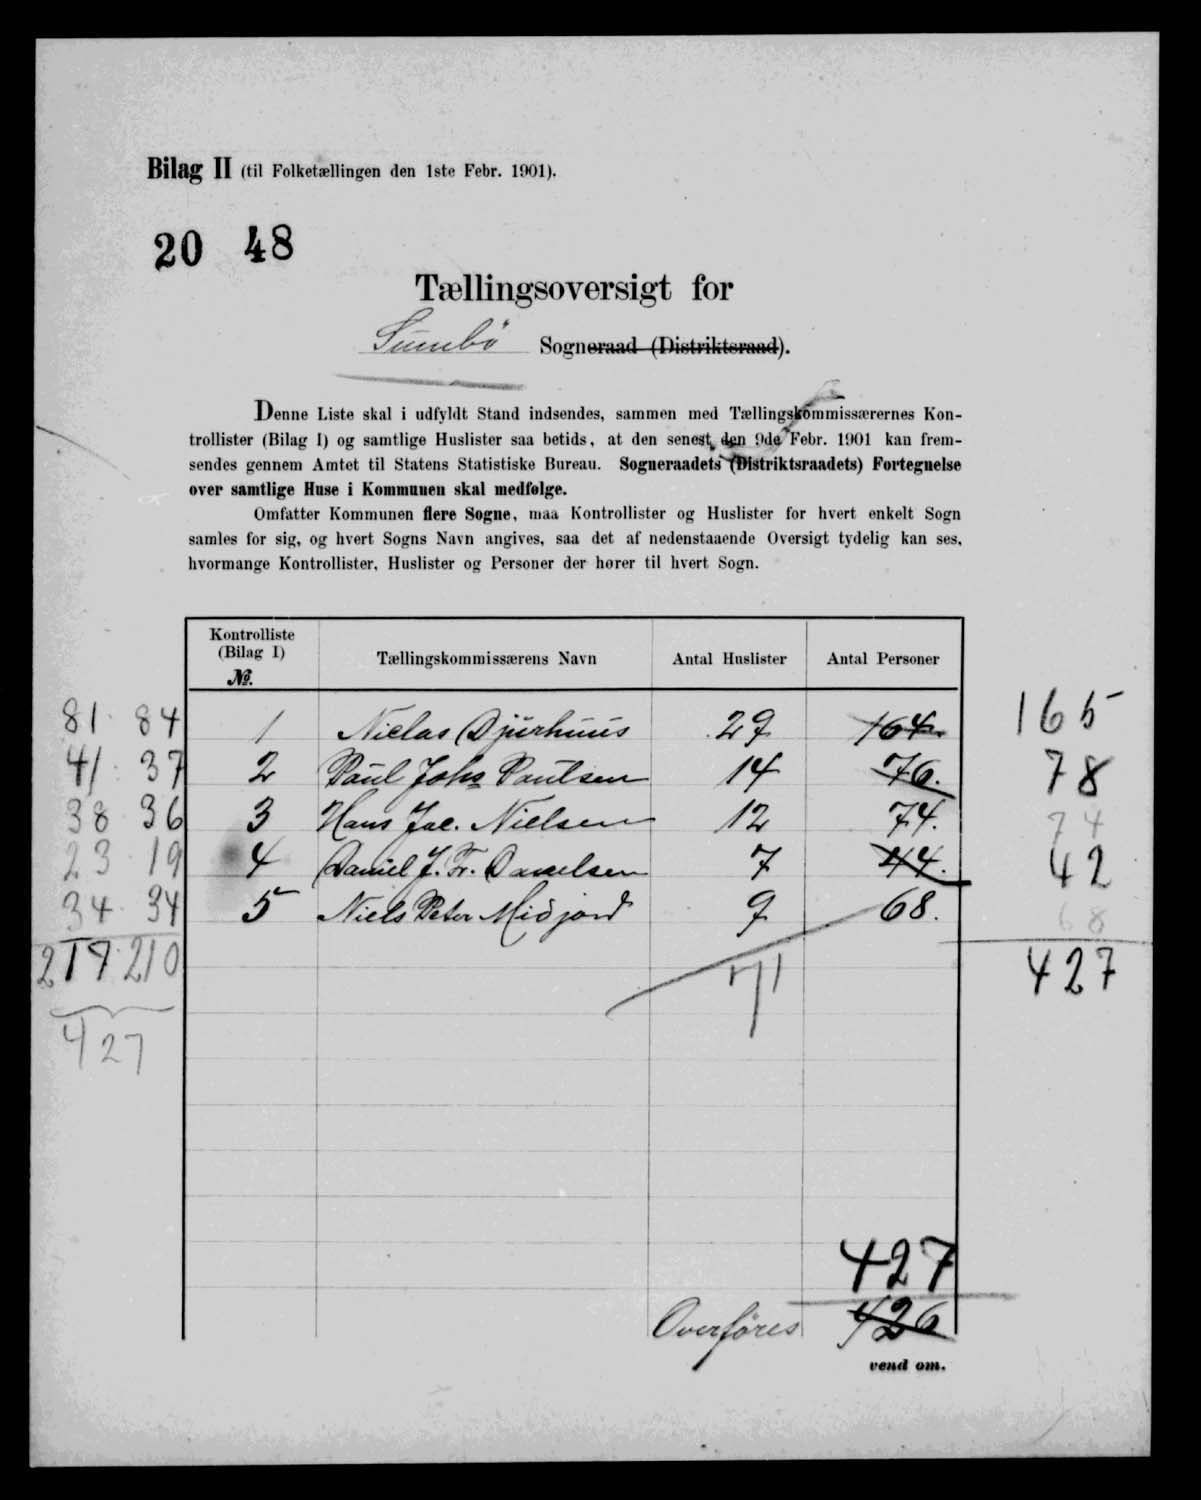 Bilag II (til Folketællingen den 1ste Febr. 1901).
20 48
Tællingsoversigt for
Sumbö Sogneraad (Distriktsraad).
Denne Liste skal i udfyldt Stand indsendes, sammen med Tællingskommissærernes Kon-
trollister (Bilag I) og samtlige Huslister saa betids, at den senest den 9de Febr. 1901 kan frem-
sendes gennem Amtet til Statens Statistiske Bureau. Sogneraadets (Distriktsraadets) Fortegnelse
over samtlige Huse i Kommunen skal medfølge.
Omfatter Kommunen flere Sogne, maa Kontrollister og Huslister for hvert enkelt Sogn
samles for sig, og hvert Sogns Navn angives, saa det af nedenstaaende Oversigt tydelig kan ses,
hvormange Kontrollister, Huslister og Personer der hører til hvert Sogn.
Kontrolliste
(Bilag I)
№.
Tællingskommissærens Navn
Antal Huslister
Antal Personer
81 84 1 Niclas Djurhuus 29 164. 165
41 37 2 Paul Johs Poulsen 14 76. 78
38 36 3 Hans Jac. Nielsen 12 74. 74
23 19 4 Daniel J. Fr. Danielsen 7 44. 42
34 34 5 Niels Peter Midjord 9 68. 68
217 210 71 427
427
427
Overföres 426
vend om.